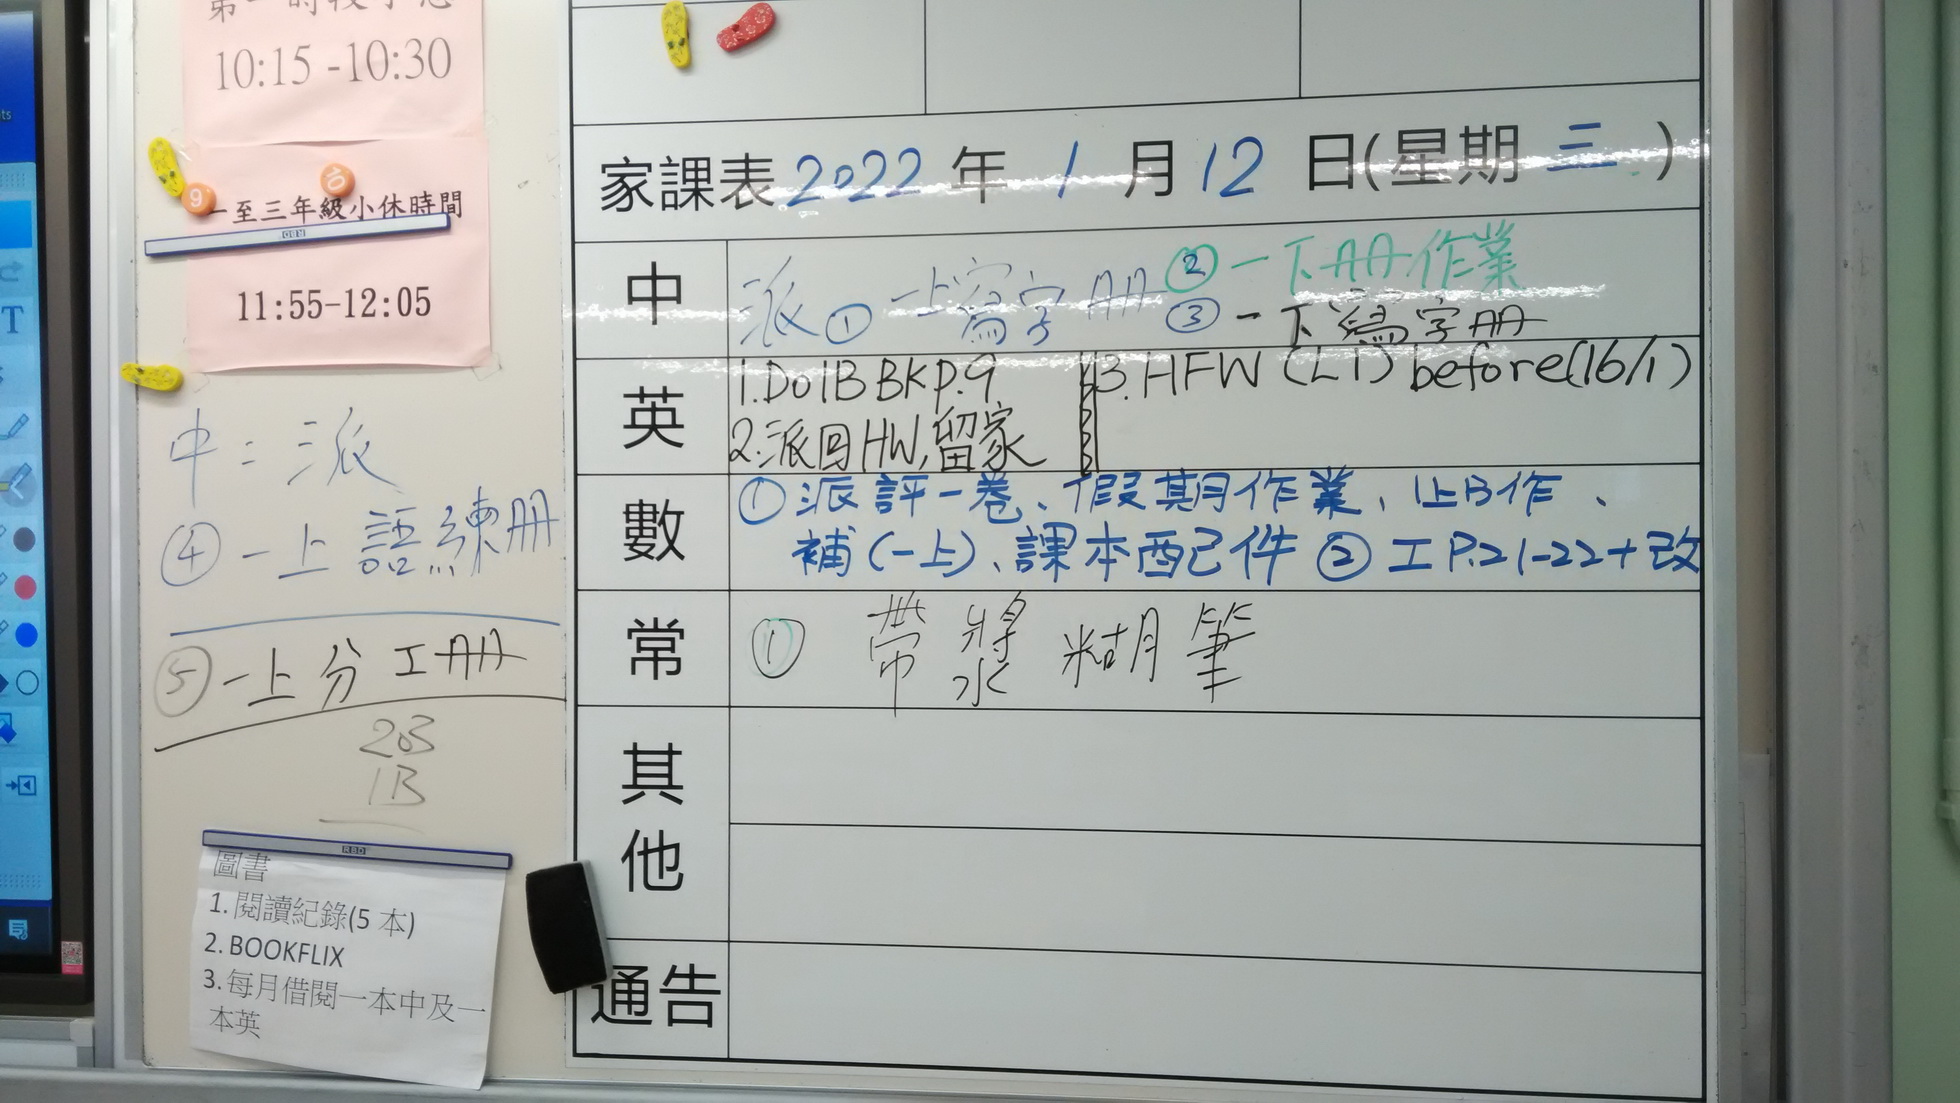 10:15 -10:30
一至三年級小休時間
9
10
11:55-12:05
中：派
④一上語練冊
⑤一上分工冊
2B3
1B
圖書
1. 閱讀紀錄(5 本)
2. BOOKFLIX
3. 每月借閱一本中及一
本英
家課表 2022 年 1 月 12 日(星期 三 )
中
派①一上寫字冊 ②一下冊作業
③一下寫字冊
英
1. Do 1B BK P.9
2. 派回HW, 留家
3. HFW (L1) before(16/1)
數
①派評一卷、假期作業、1上B作、
補(一上)、課本配件 ②工P.21-22+改
常
① 帶漿糊筆
其他
通告